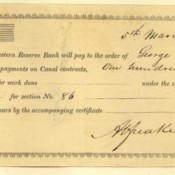 5th Mar
stern Reserve Bank will pay to the order of George
payments on Canal contracts, One hundred
or work done under the
for section No. 86
ears by the accompanying certificate